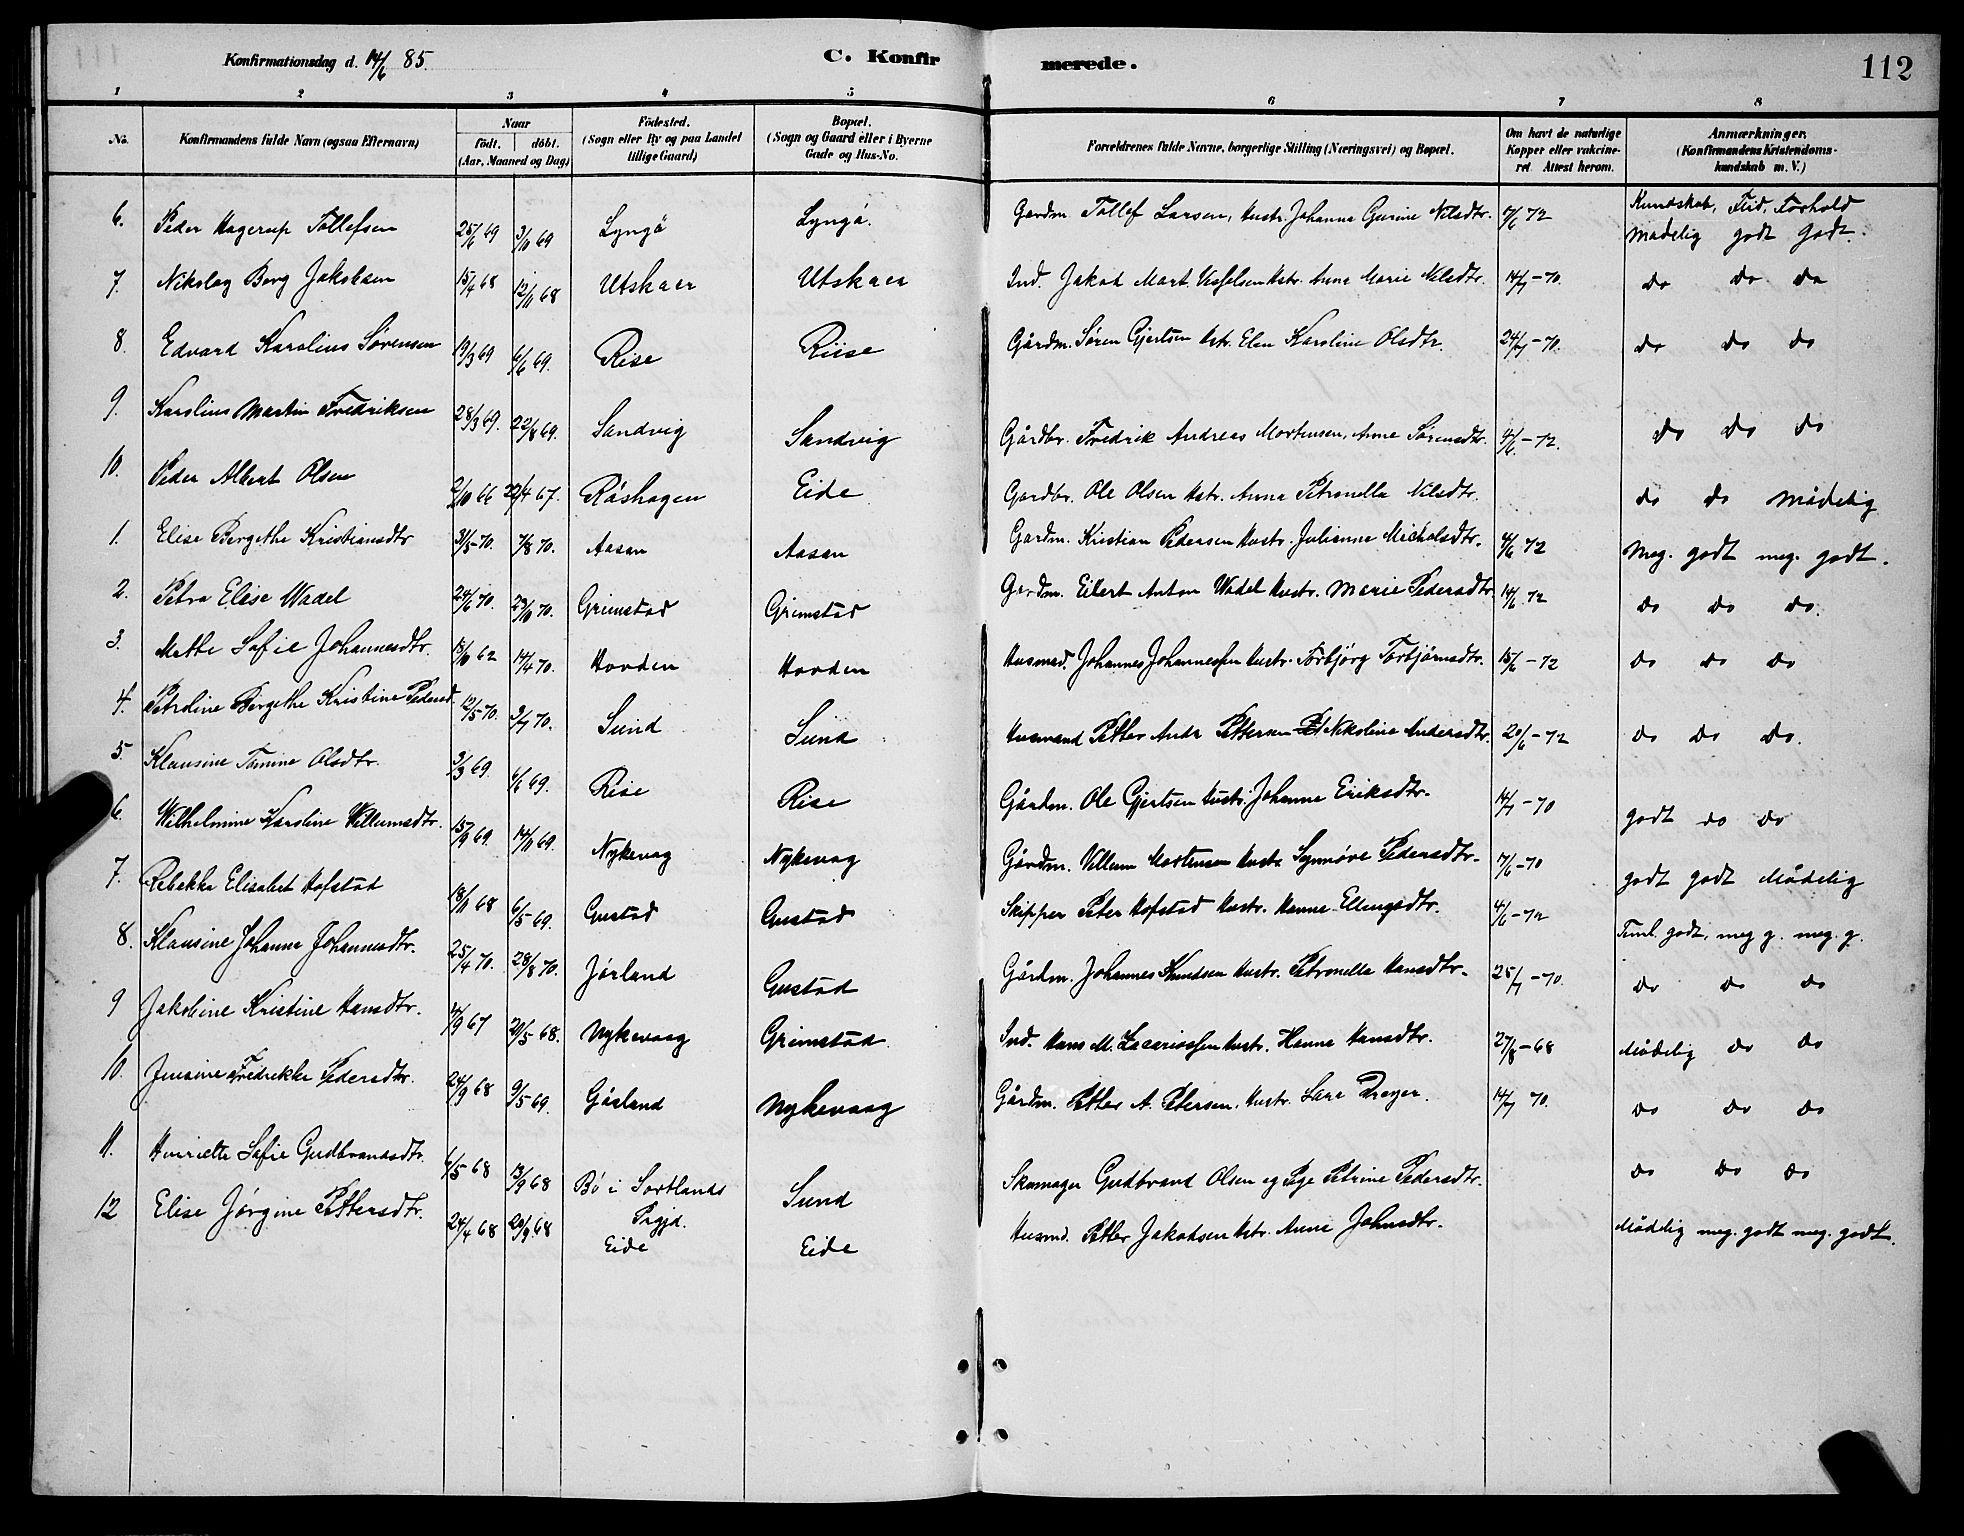 Konfirmationsdag d. 14/6 85.
C. Konfirmerede.
112
1 2 3 4 5 6 7 8
No.
Konfirmandens fulde Navn (ogsaa Efternavn)
Naar
födt. döbt.
(Aar, Maaned og Dag)
Födested.
(Sogn eller By og paa Landet tillige Gaard)
Bopæl.
(Sogn og Gaard eller i Byerne Gade og Hus-No.
Forældrenes fulde Navne, borgerlige Stilling (Næringsvei) og Bopæl.
Om havt de naturlige Kopper eller vakcineret. Attest herom.
Anmærkninger.
(Konfirmandens Kristendomskundskab m. V.)
Kundskab, Flid, Forhold
6. Peder Hagerup Tollefsen 25/6 69 3/11 69 Lyngö Lyngö. Gardm. Tollef Larsen, Hustr. Johanna Gurine Nilsdtr. 5/6 72 Mådelig godt godt.
7. Nikolay Berg Jakobsen 15/4 68 12/11 68 Utskaer Utskaer Ind. Jakob Mart. Hstr. Anne Marie Nilsdtr. 14/7-70. do do do
8. Edvard Karolius Sörensen 19/3 69 6/6 69. Rise Riise Gårdm. Sören Gjertsen Hstr. Elen Karoline Olsdtr. 24/7-70. do do do
9. Karolius Martin Fredriksen 28/3 69. 22/8 69. Sandvig Sandvig Gårdbr. Fredrik Andreas Mortensen, Anne Sörensdtr. 4/6-72. do do do
10. Peder Albert Olsen 2/10 66 22/4 67. Råshagen Eide Gardbr. Ole Olsen Hstr. Anna Petronella Nilsdtr. do do Mådelig
1. Elise Bergithe Kristiansdtr 3/5-70. 7/8 70. Aasan Aasan Gardm. Kristian Pedersen Hustr. Julianna Micholsdtr. 4/6 72 Meg. godt meg. godt.
2. Petra Elise Wadel 24/6 70. 23/10 70. Grimstad Grimstad Gardm. Eilert Anton Wadel Hustr. Marie Pedersdtr. 14/6 72 do do do.
3. Mette Sofie Johannesdtr. 18/10 62 14/4 70. Hovden Hovden Husmd. Johannes Johannessen Hustr. Torbjörg Torbjörnsdtr. 15/6-72 do do do
4. Petroline Bergithe Kristine Pedersd. 12/5 70. 3/7 70. Sund Sund Husmand Petter Andr Pettersen Nikoline Andersdtr. 20/6-72 do do do.
5. Klausine Tomine Olsdtr. 3/3 69. 6/6 69. Rise Rise Gårdm. Ole Gjertsen Hustr. Johanna Eriksdtr. 14/7-70 godt do do
6. Wilhelmine Karoline Willumsdtr. 15/9 69. 14/11 69. Nykevag Nykevag Gårdm. Villum Mortensen Hustr Synnöve Pedersdtr. 17/6-70 godt godt Mådelig
7. Rebekka Elisabet Hofstad 18/11 68 6/5 69. Gustad Gustad Skipper Peter Hofstad Hustr. Hanna Ellingsdtr. 4/6-72 Teml. godt, meg g. meg. g.
8. Klausine Johanna Johannesdtr. 25/4 70. 28/8 70. Jörland Gustad Gårdm. Johannes Knudsen Hustr. Petronella Hansdtr. 25/7-70. do do do
9 Jakobine Kristine Hansdtr. 4/9 67 20/5-68. Nykevaag Grimstad Ind. Hans M. Zacariassen Hustr. Hanna Hansdtr. 27/8-68 Mådelig do do
10. Jensine Fredrikke Pedersdtr. 24/9 68 9/5 69. Gåsland Nykevaag Gårdm. Petter A. Petersen, Hustr. Sara Dreyer. 14/7 70. do do do
11. Henriette Sofie Gudbrandsdtr. 6/5 68 13/9 68 Bö i Sortlands Prgjd. Sund Skomager Gudbrand Olsen og Pige Petrine Pedersdtr. do do do
12 Elise Jörgine Pettersdtr. 24/4 68 20/9 68 Eide Eide Husmd. Petter Jakobsen Hstr. Anne Johnsdtr. Mådelig meg. godt meg. godt.